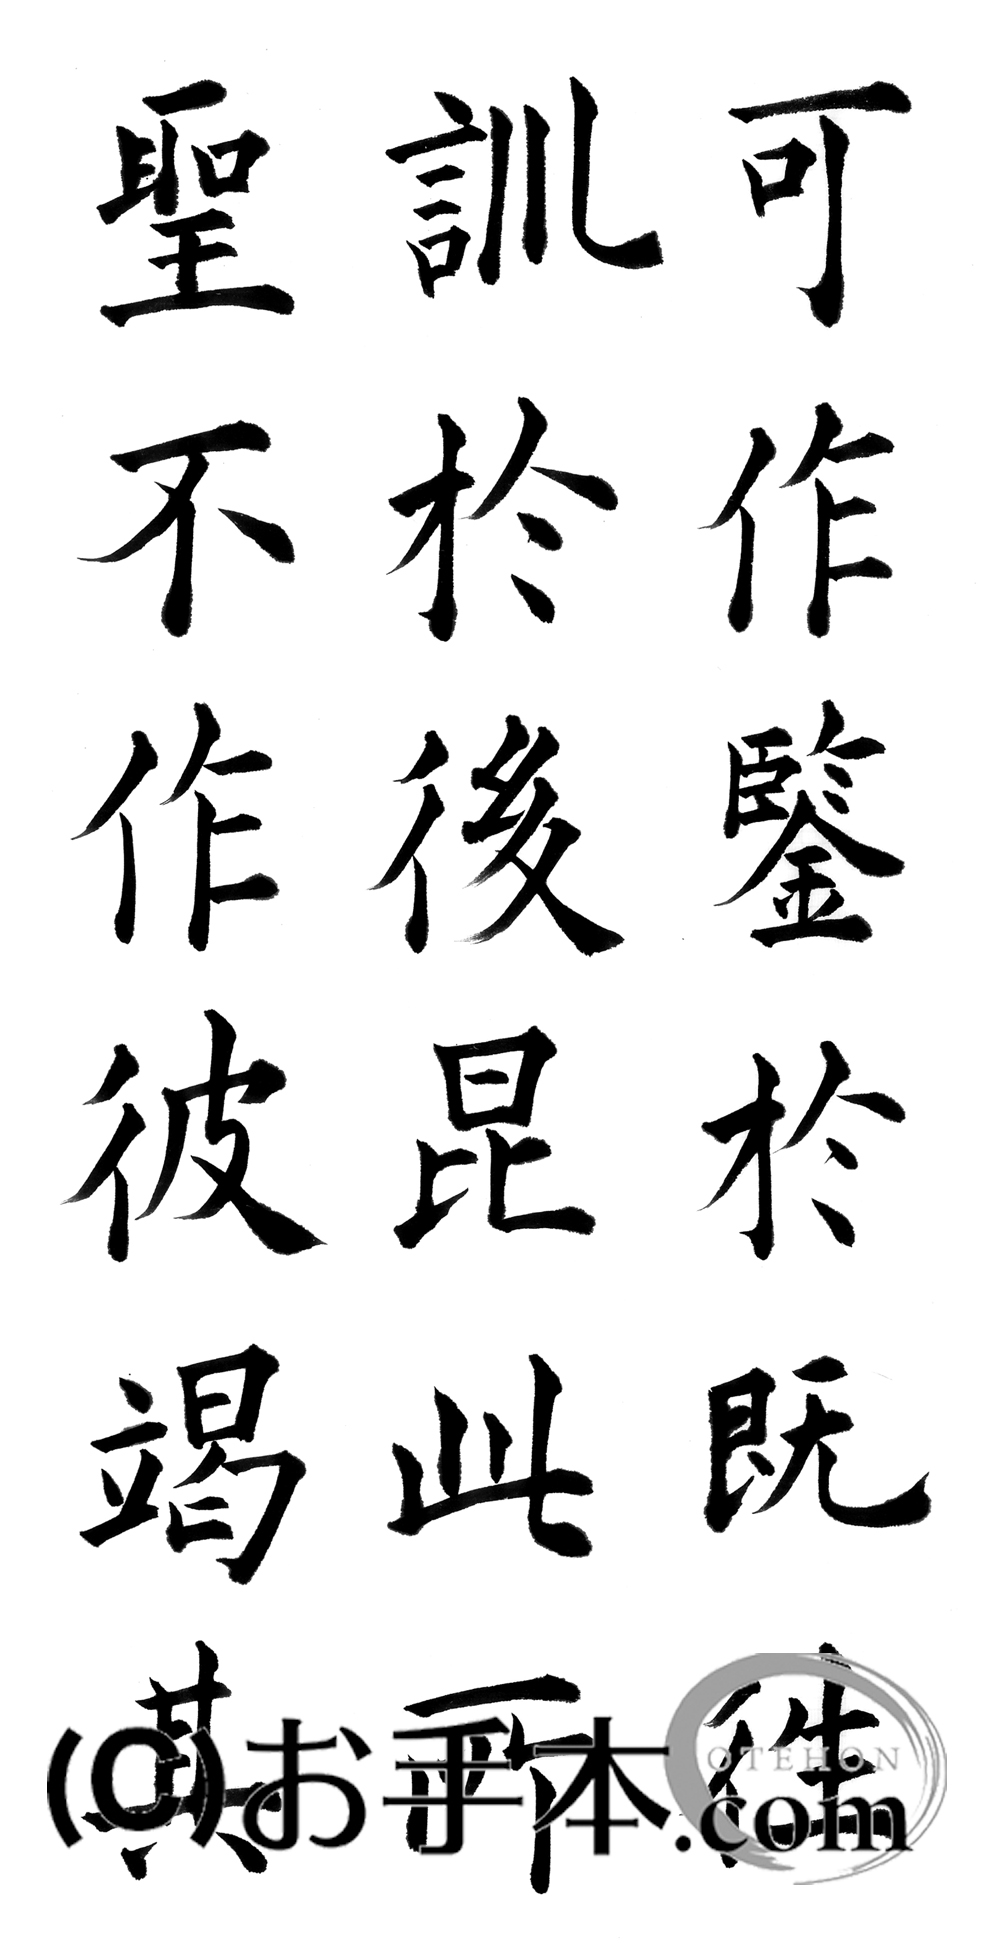 可作鑒於既往
訓於後昆此所
聖不作彼竭其
(C)お手本.com
OTEHON